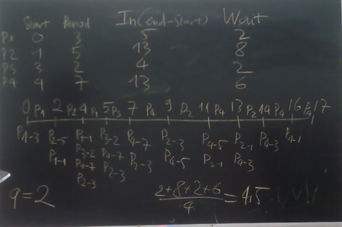 Start Period In(end-start) Wait
P1 0 3 5 2
P2 1 5 13 8
P3 3 2 4 2
P4 4 7 13 6
0 P1 2 P2 4 P1 5 P3 7 P4 9 P2 11 P4 13 P2 14 P4 16 P4 17
P1-3 P2-5 P1-1 P3-2 P4-7 P2-3 P4-5 P4-3 P4-1
P1-1 P3-2 P4-7 P2-3 P4-5 P2-1
P4-7 P2-3
P2-3
q=2
2+8+2+6
4
=4,5